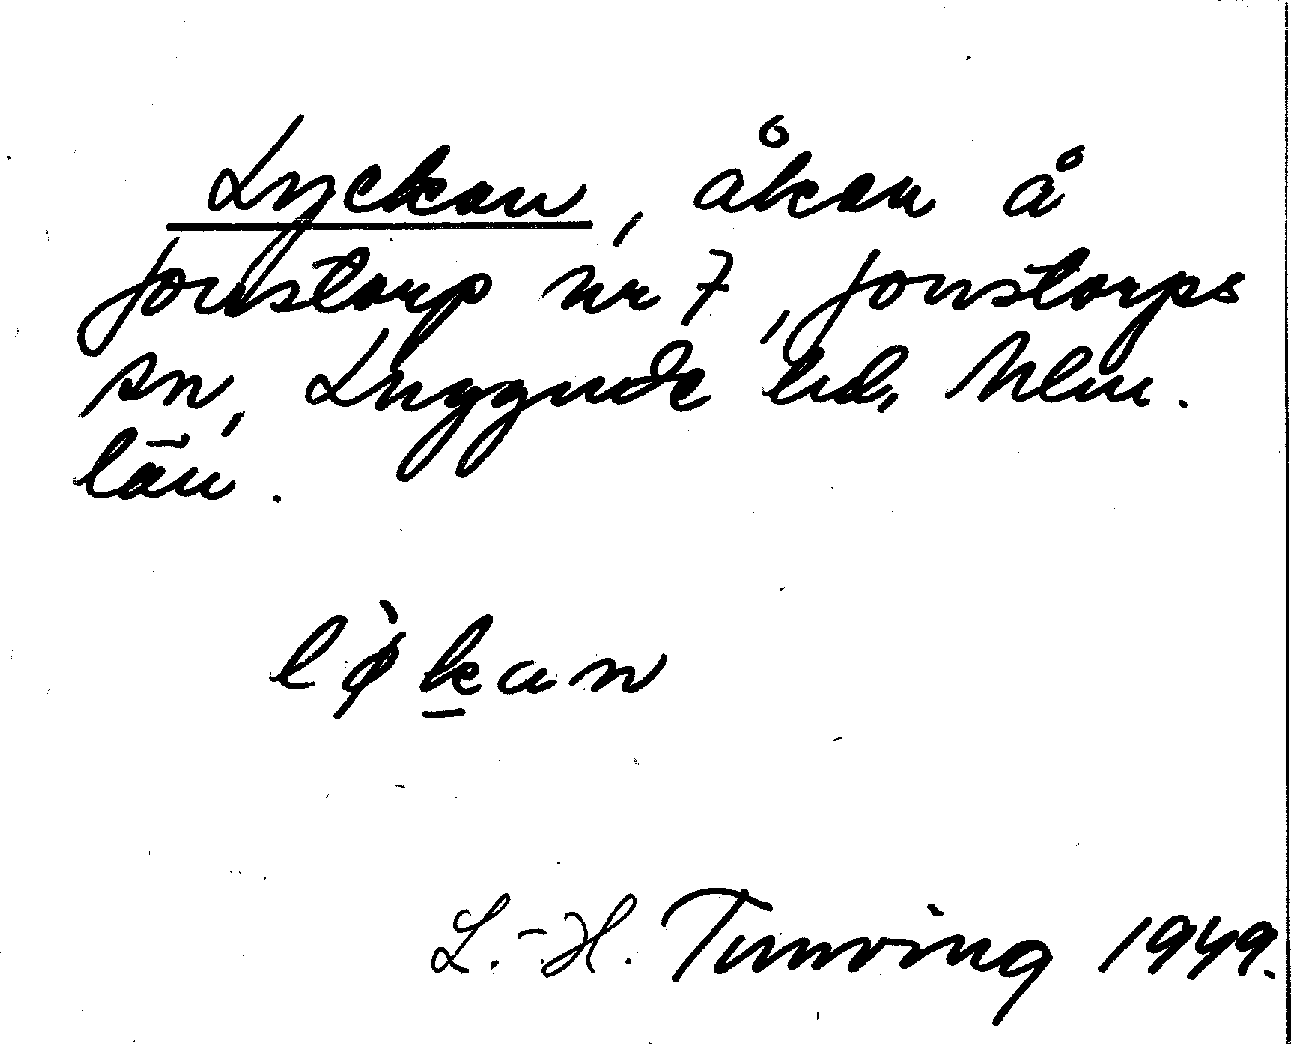 Lyckan, åker å
Jonstorp nr 7, Jonstorps
sn, Luggude hd, Mlm.
län.
lø̀kan
L.-H. Tunving 1949.